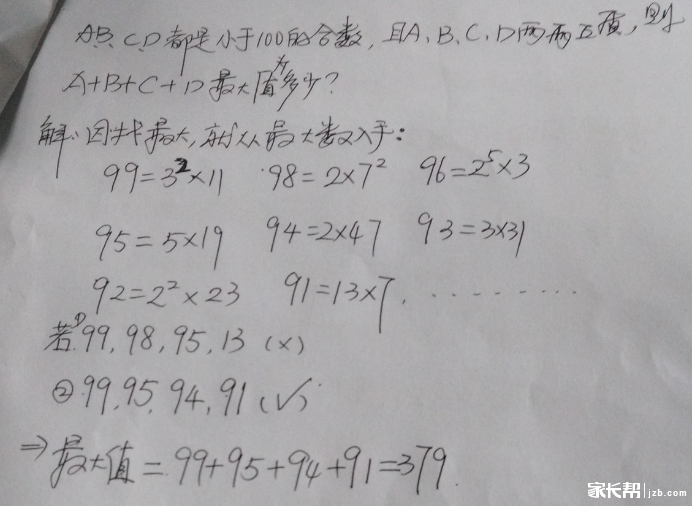 A、B、C、D都是小于100的合数,且A、B、C、D两两互质,则
A+B+C+D最大值为多少?
解:因找最大,就从最大数入手:
99=3²×11 98=2×7² 96=2⁵×3
95=5×19 94=2×47 93=3×31
92=2²×23 91=13×7, ………
若①99,98,95,13(×)
②99,95,94,91(√)
⇒最大值=99+95+94+91=379.
家长帮 jzb.com